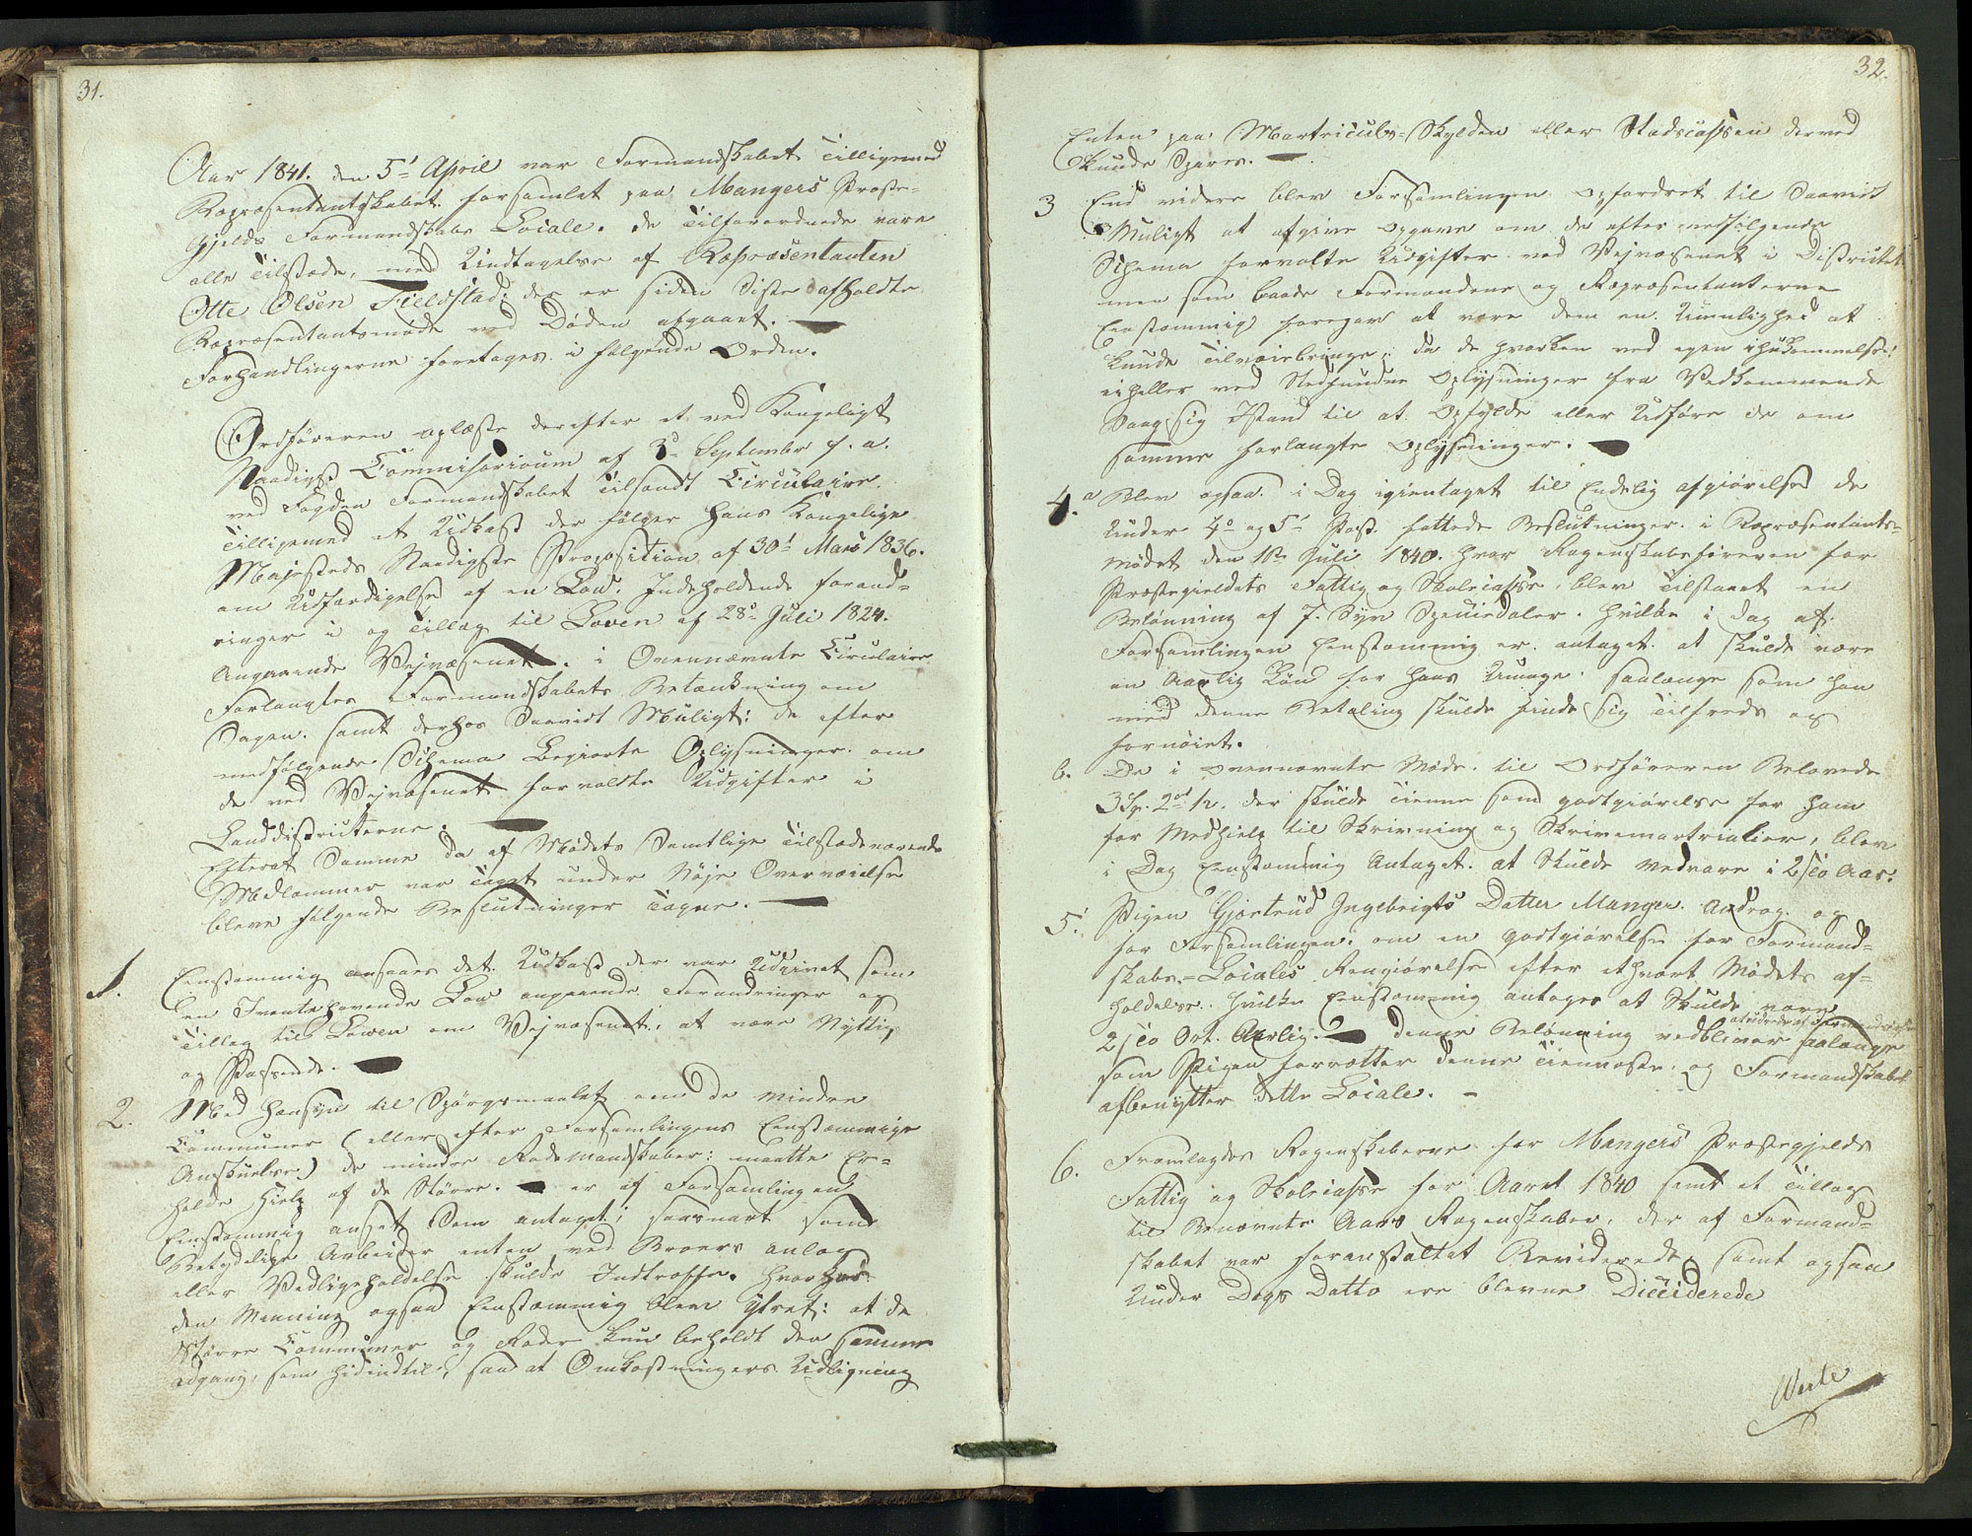 31.
Aar 1841. den 5t April var Formandskabet tilligemed
Repræsentantskabet forsamlet paa Mangers Præste-
gjelds Formandskabs Locale. de Tilforordnede vare
alle tilstæde, med Undtagelse af Repræsentanten
Otte Olsen Fieldstad: der er siden Siste afholdte
Repræsentantsmøde ved Døden afgaaet.
Forhandlingerne foretages i følgende Orden.
Ordføreren oplæste derefter et ved Kongeligt
Naadigst Commisorioum af 3d September f. a.
ved Fogden Formandskabet tilsendt Circulaire
tilligemed et Udkast der følger Hans Kongelige
Majestets Naadigste Proposition af 30t Mars 1836.
om Udfærdigelse af en Lov. Indeholdende forand-
ringer i og Tillæg til Loven af 28d Juli 1824.
Angaaende Vejvæsenet. i Ovennævnte Circulaire
Forlanges Formandskabets Betænkning om
Sagen. samt derhos Saavidt Muligt: de efter
medfølgende Schema Begjærte Oplysninger om
de ved Vejvæsenet forvoldte Udgifter i
Landdistricterne.
Efterat Samme da af Mødets Samtlige tilstædeværende
Medlemmer var taget under Nøje Overveielse
bleve følgende Beslutninger tagne.
1. Eenstemmig ansaaes det Udkast der var Udgivet som
en Ivæntehavende Lov angaaende Forandringer og
Tillæg til Loven om Vejvæsenet, at være Nyttig
og Passende.
2. Med Hensyn til Spørgsmaalet om de Mindre
Communer (eller efter Forsamlingens Eenstemmige
Anskuelse) de mindre Rodemandskaber: maatte Er-
holde Hjelp af de Større. er af Forsamlingen
Eenstemmig anseet Som antaget; saasnart som
Betydelige Arbeider enten ved Broers anlæg
eller Vedligeholdelse skulde Indtræffe. Hvorhos
den Mening ogsaa Eenstemmig blev Ytret: at de
Større Communer og Roder kun beholdt den samme
adgang, som hidindtil, saa at Omkostningers Udligning
32.
Enten paa Martriculs-Skylden eller Stadscassen derved
kunde Spares.
3 End videre blev Forsamlingen opfordret til Saavidt
Muligt at afgive opgave om de efter medfølgende
Schema forvolte Udgifter ved Vejvæsenet i Districtet
men som baade Formændene og Repræsentanterne
Eenstemmig foregav at være dem en Umulighed at
kunde tilveiebringe: da de hverken ved egen ihukommelse
eiheller ved Stedfundne Oplysninger fra Vedkommende
Saag sig Istand til at Opfylde eller Udføre de om
samme forlangte Oplysninger.
4. a Blev ogsaa i Dag igientaget til Endelig afgiørelse de
Under 4d og 5t Post fattede Beslutninger i Repræsentants-
mødet den 1ste Juli 1840. hvor Regenskabsføreren for
Præstegieldets Fattig og Skolecasse, blev tilstaaet en
Belønning af 7. Syv Speciedaler. hvilke i dag af
Forsamlingen Eenstemmig er antaget at skulde være
en Aarlig Løn for hans Umage. saalænge som han
med denne Betaling skulde finde sig tilfreds og
fornøiet.
b. De i ovennævnte Møde til Ordføreren Belovede
3 Sp. 2 ort h. der skulde tienne som godtgiørelse for ham
for Medhjelp til Skrivning og Skrivemartrialier, blev
i Dag Eenstemmig Antaget at Skulde vedvare i 2/to Aar.
5. Pigen Gjertrud Ingebrigts Datter Manger. Androg og
for Forsamlingen. om en godtgiørelse for Formand-
skabs-Locales Rengiørelse efter ethvert Mødets af-
holdelse. hvilke Eenstemmig antages at Skulde være
2/to Ort. Aarlig. denne Belønning vedbliver saalænge
som Pigen forretter denne tienneste. og Formandskabet
afbenytter dette Locale.
6. Fremlagdes Regenskaberne for Mangers Præstegjelds
Fattig og Skolecasse for Aaret 1840 samt et Tillæg
til Benævnte Aars Regenskaber, der af Formand-
skabet var foranstaltet Reviderede, samt ogsaa
Under Dags Datto ere blevne Deciderede